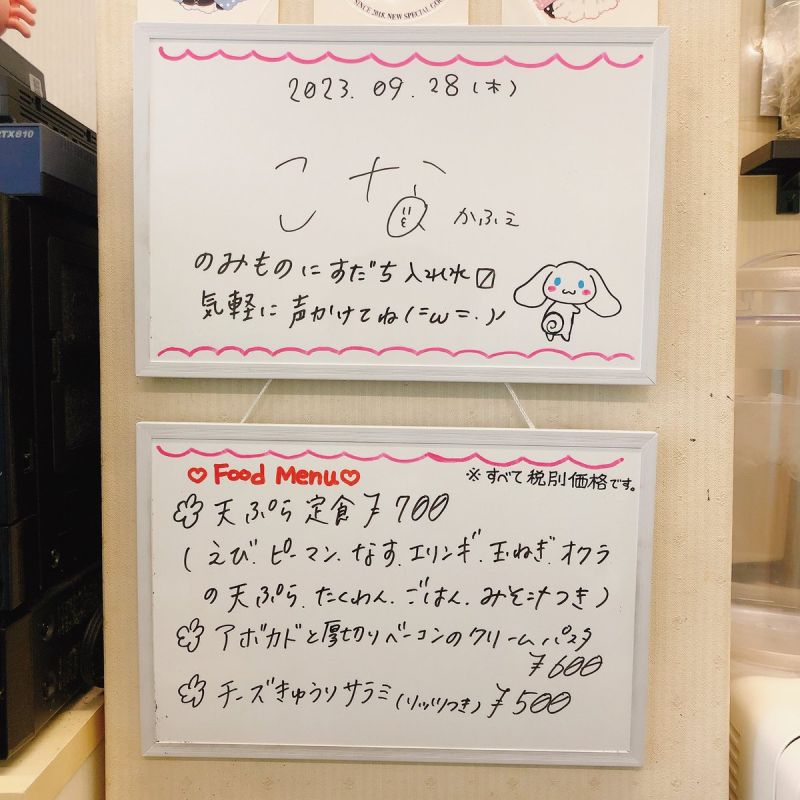 SINCE 2018. NEW SPECIAL
RTX810
2023. 09. 28 (木)
こな かふぇ
のみものにすだち入れれ〼
気軽に声かけてね(=ω=.)ノ
♡Food Menu♡
※すべて税別価格です。
天ぷら定食 ¥700
(えび、ピーマン、なす、エリンギ、玉ねぎ、オクラ
の天ぷら、たくわん、ごはん、みそ汁つき)
アボカドと厚切りベーコンのクリームパスタ
¥600
チーズきゅうりサラミ(リッツつき) ¥500